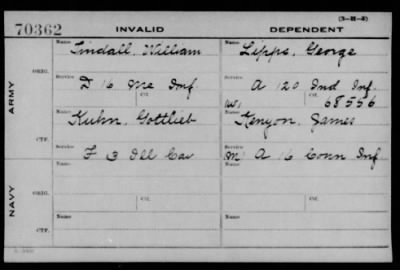 (3-H-3)
70362 INVALID DEPENDENT
Name Tindall, William Name Lipps, George
ARMY
ORIG. Service D 16 Me Inf. Service A 120 Ind Inf.
Ctf. (W) Ctf. 68556
Name Kuhn, Gottlieb Name Kenyon, James
CTF. Service F 13 Ill Cav Service (M) A 16 Conn Inf
NAVY
Name Name
ORIG.
Ctf. Ctf.
Name Name
CTF.